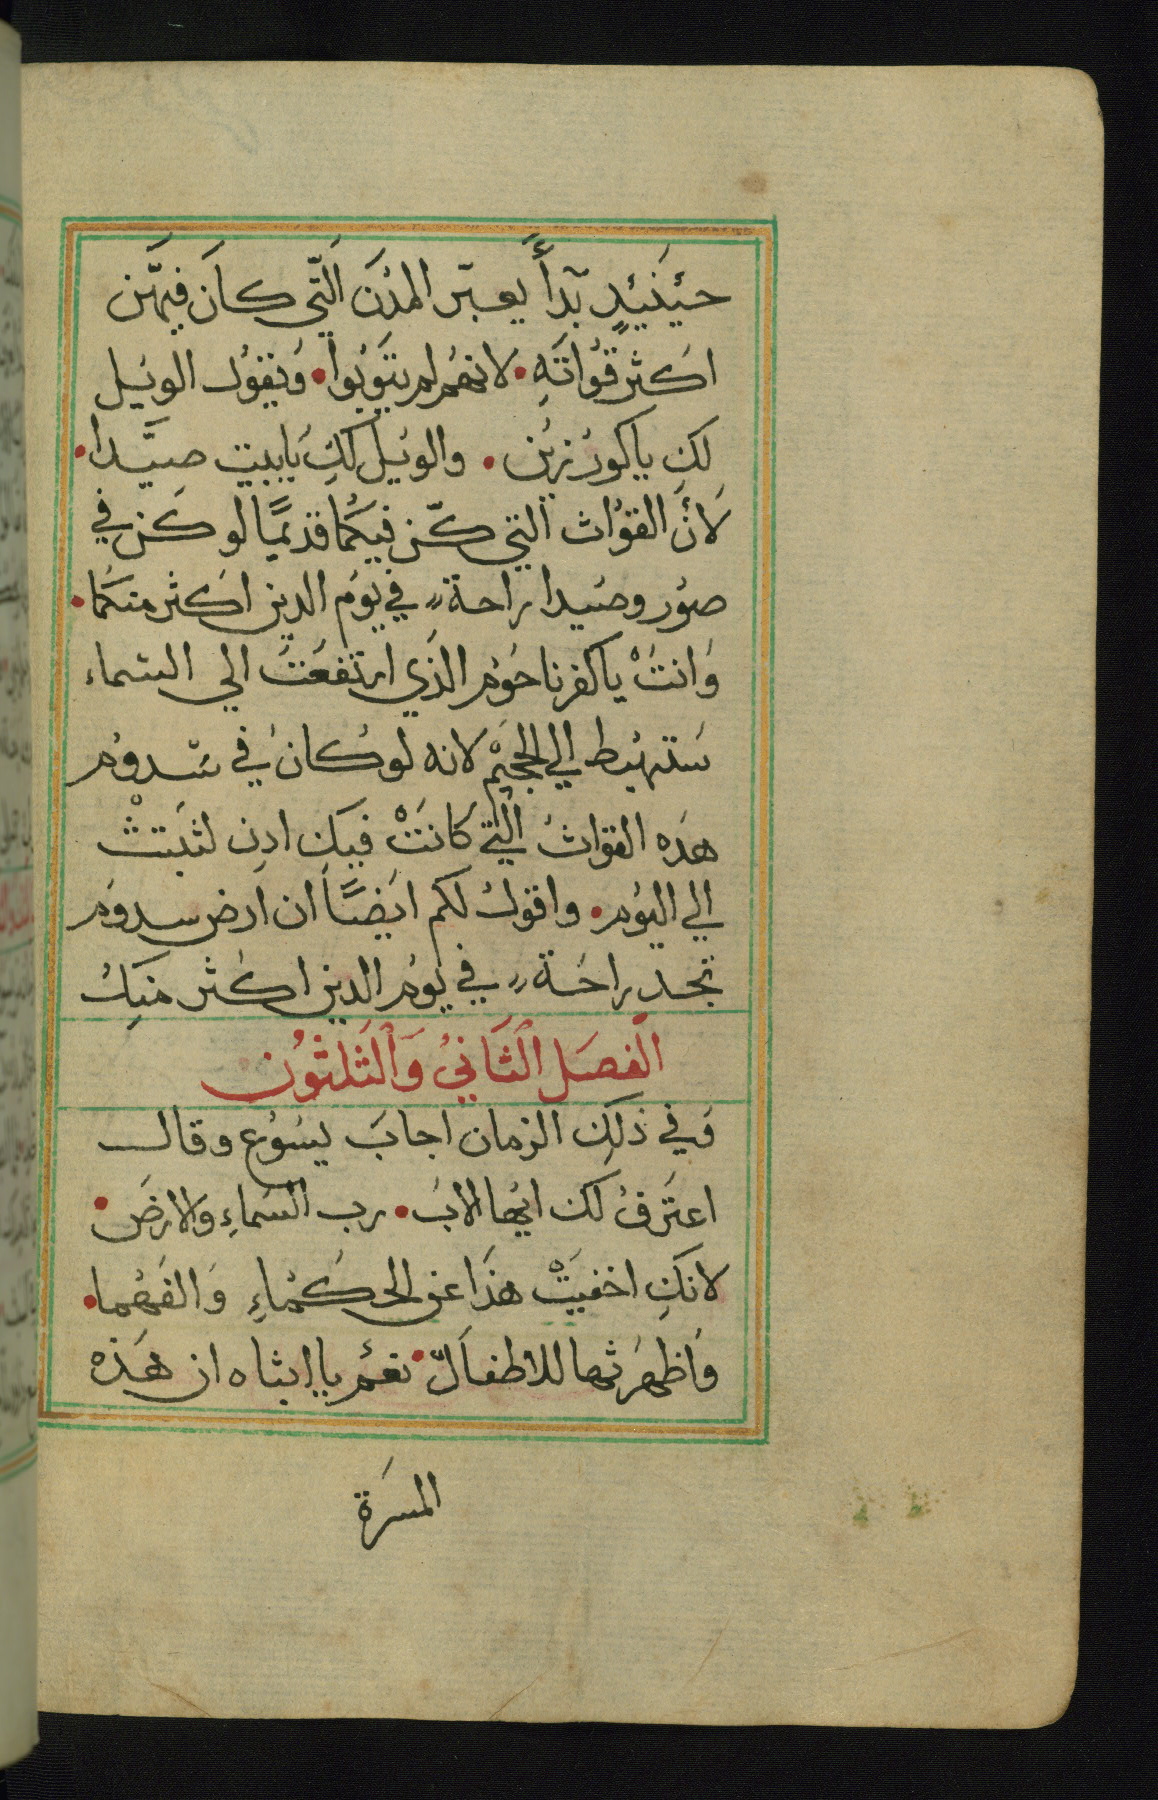 حينَئيذٍ بَدأَ يعيّر المدُنَ الَتّي كانَ فيهّن
اكَثر قُواتَهِ • لانهُم لم يتَوبُوا • وَيقوُل الويُل
لكِ يا كورُزيُن • والويُل لكِ يا بيت صيَّدا •
لأنَ القوُاث التي كنّ فيكُما قديمًا لو كن في
صوُر وصيُدا راحة في يوَم الدين اكَثر منكُما •
وَانتَ يا كفرناحوُم الذَي ارتفعَتَ الي السماء
ستهبُط الي الجحيْم لانه لو كُان في سَدوم
هذَه القواث التي كانتَْ فيك اذن لثبَتث
الي اليوُم • واقوُل لكم ايضًا ان ارض سدوَم
تجد راحَة في يوُم الدين اكثَر منكُ
الَفصَل الثَانيُ وَالثَلثوُن
وَفي ذلَكِ الزمان اجابَ يسَوُع وقال
اعتَرفُ لكَ ايُها الابَ • رب السَماءِ والارضَ •
لانكَِ اخفيَتْ هذَا عن الحكَمُاءِ وَالفَهُما •
وَاظهَرثها للاطفالّ • نعَم يا ابثاه ان هَذه
المسَرة